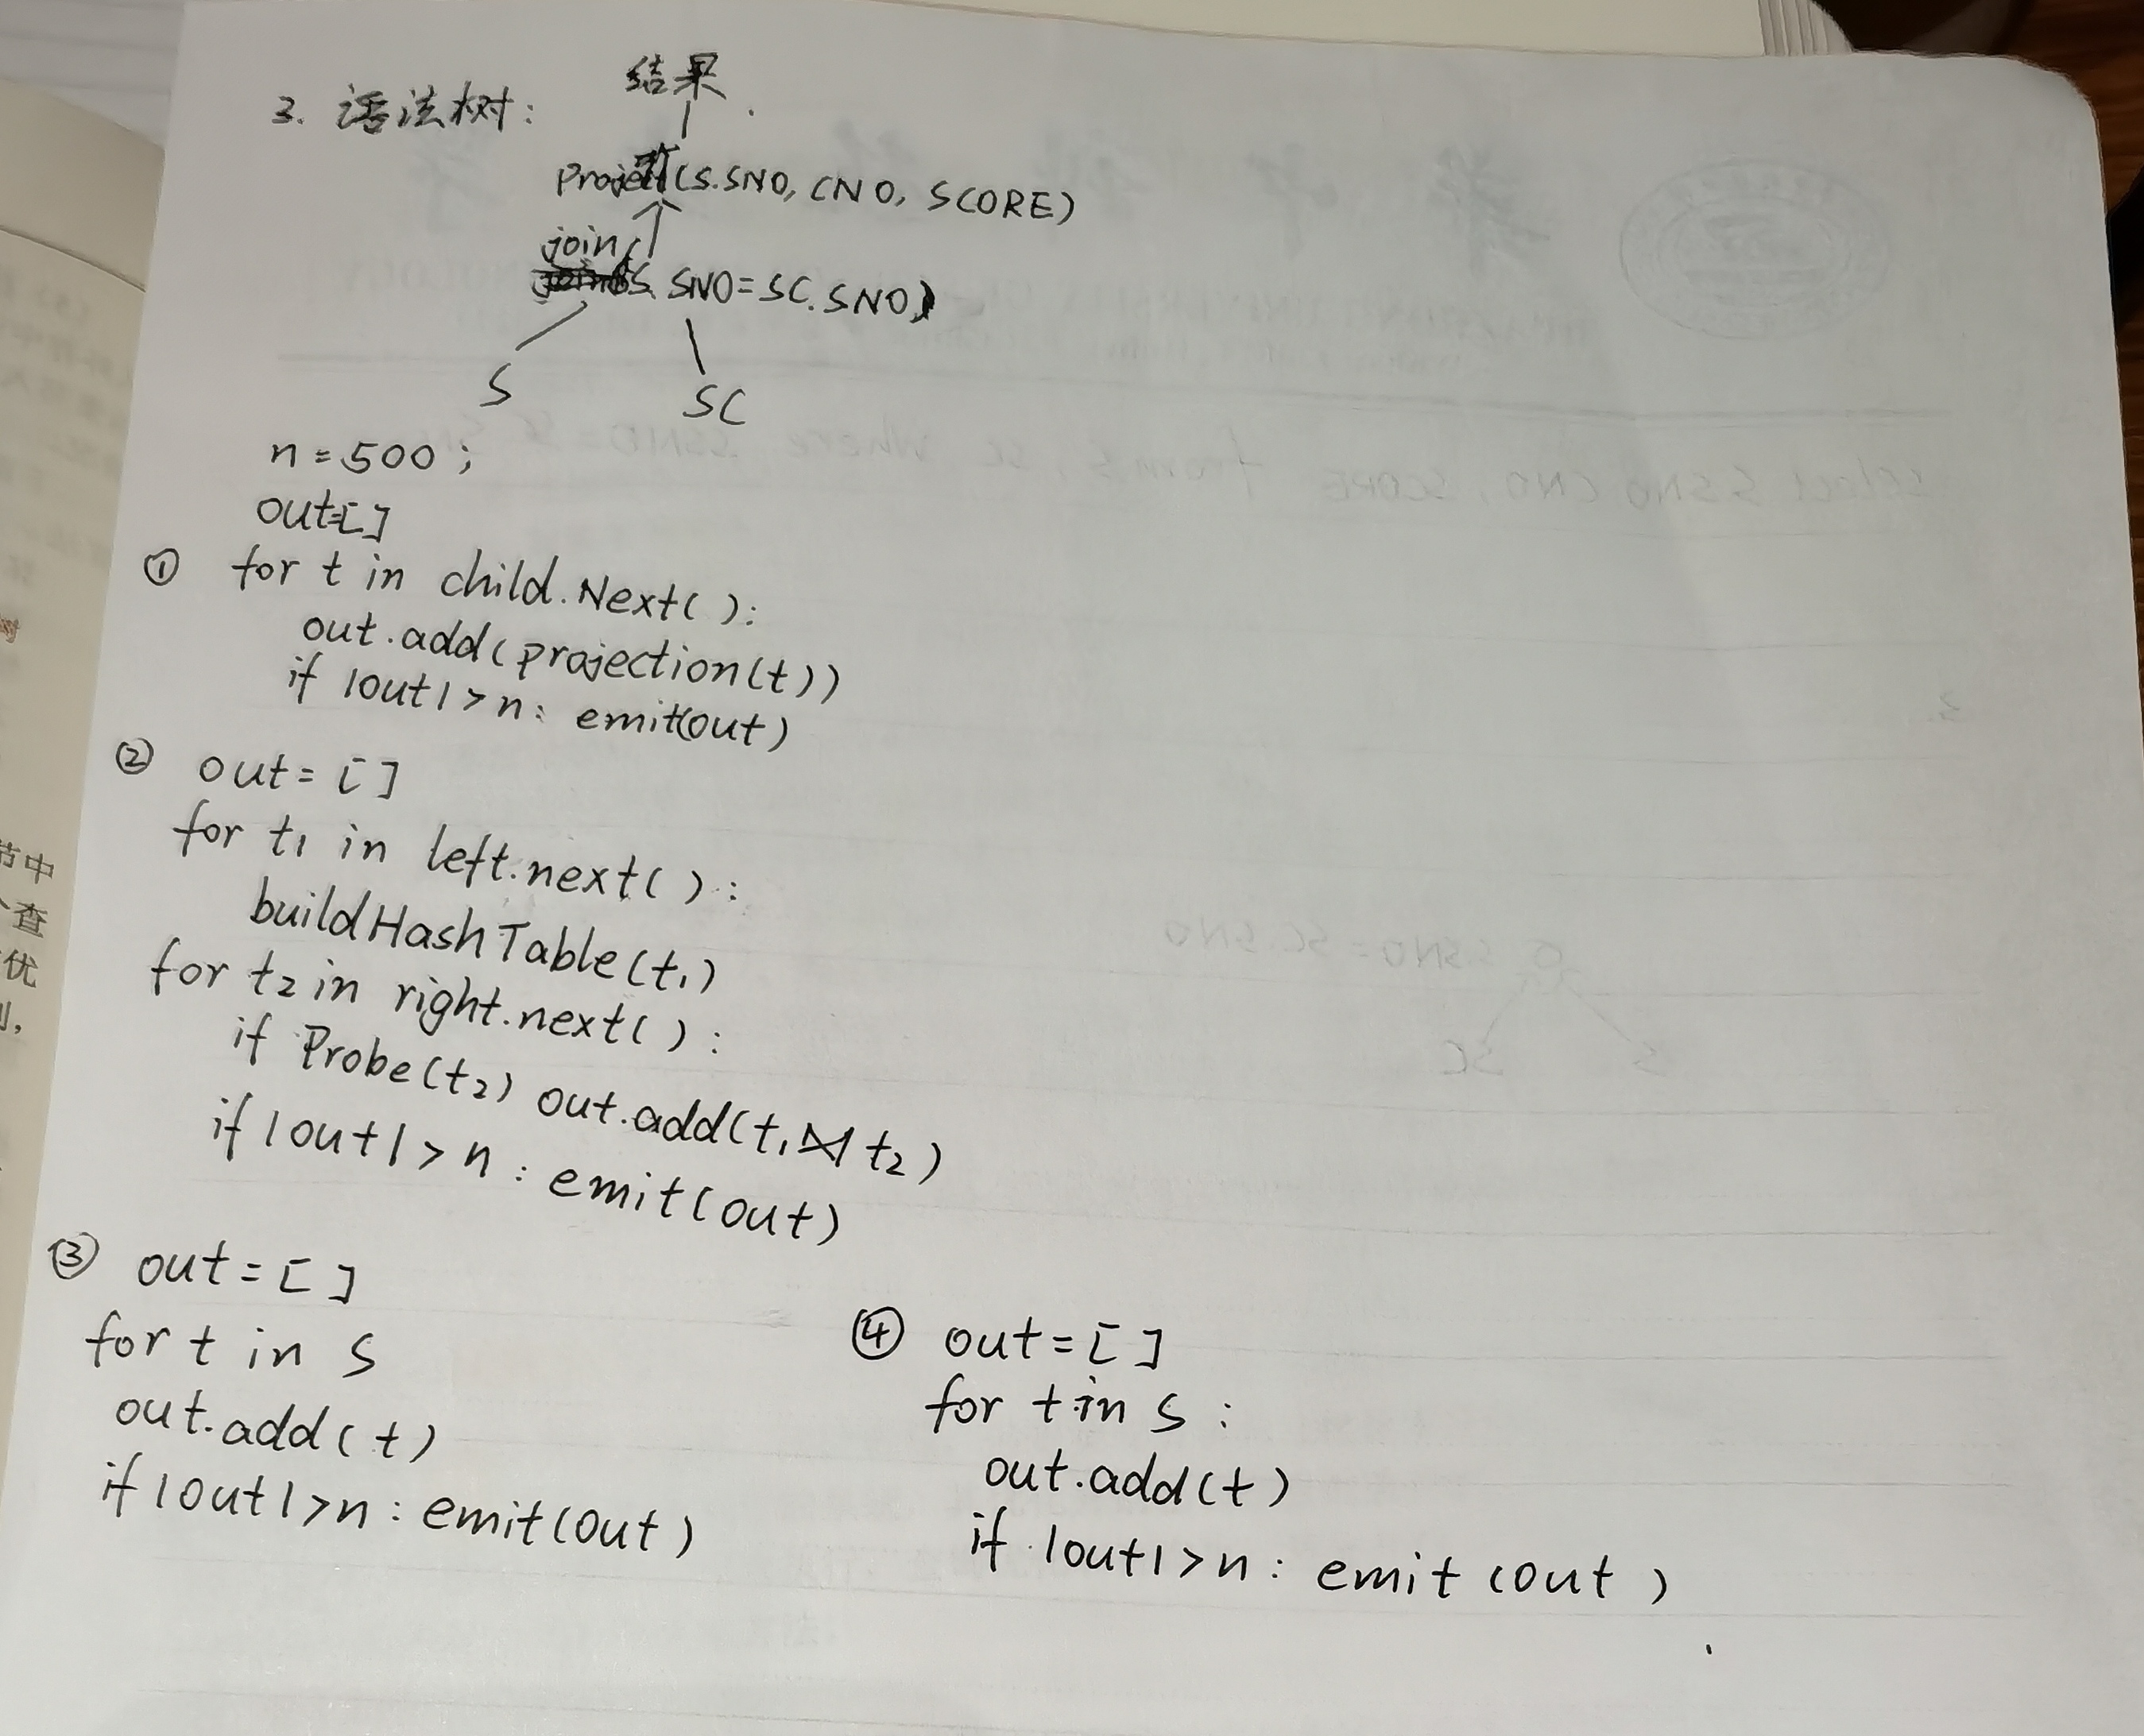 3. 语法树:
结果
Project(S.SNO, CNO, SCORE)
join(
S. SNO=SC.SNO)
S
SC
n=500;
out=[]
① for t in child.Next():
out.add(projection(t))
if |out|>n: emit(out)
② out=[]
for t1 in left.next():
buildHashTable(t1)
for t2 in right.next():
if Probe(t2) out.add(t1⋈t2)
if |out|>n: emit(out)
③ out=[]
for t in S
out.add(t)
if |out|>n: emit(out)
④ out=[]
for t in S:
out.add(t)
if |out|>n: emit(out)
节中
个查
优